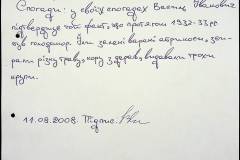 Спогади: у своїх спогадах Василь Іванович
підтверджує той факт, що протягом 1932-33 рр
був голодомор. Їли зелені варені абрикоси, зби-
рали різну траву, кору з дерев, видавали трохи
крупи.
11.08.2008. Підпис.